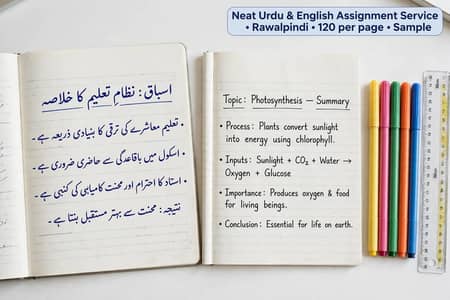 Neat Urdu & English Assignment Service
• Rawalpindi • 120 per page • Sample
اسباق: نظامِ تعلیم کا خلاصہ
• تعلیم معاشرے کی ترقی کا بنیادی ذریعہ ہے۔
• اسکول میں باقاعدگی سے حاضری ضروری ہے۔
• استاد کا احترام اور محنت کامیابی کی کنجی ہے۔
نتیجہ: محنت سے بہتر مستقبل بنتا ہے۔
Topic: Photosynthesis — Summary
• Process: Plants convert sunlight
into energy using chlorophyll.
• Inputs: Sunlight + CO₂ + Water →
Oxygen + Glucose
• Importance: Produces oxygen & food
for living beings.
• Conclusion: Essential for life on earth.